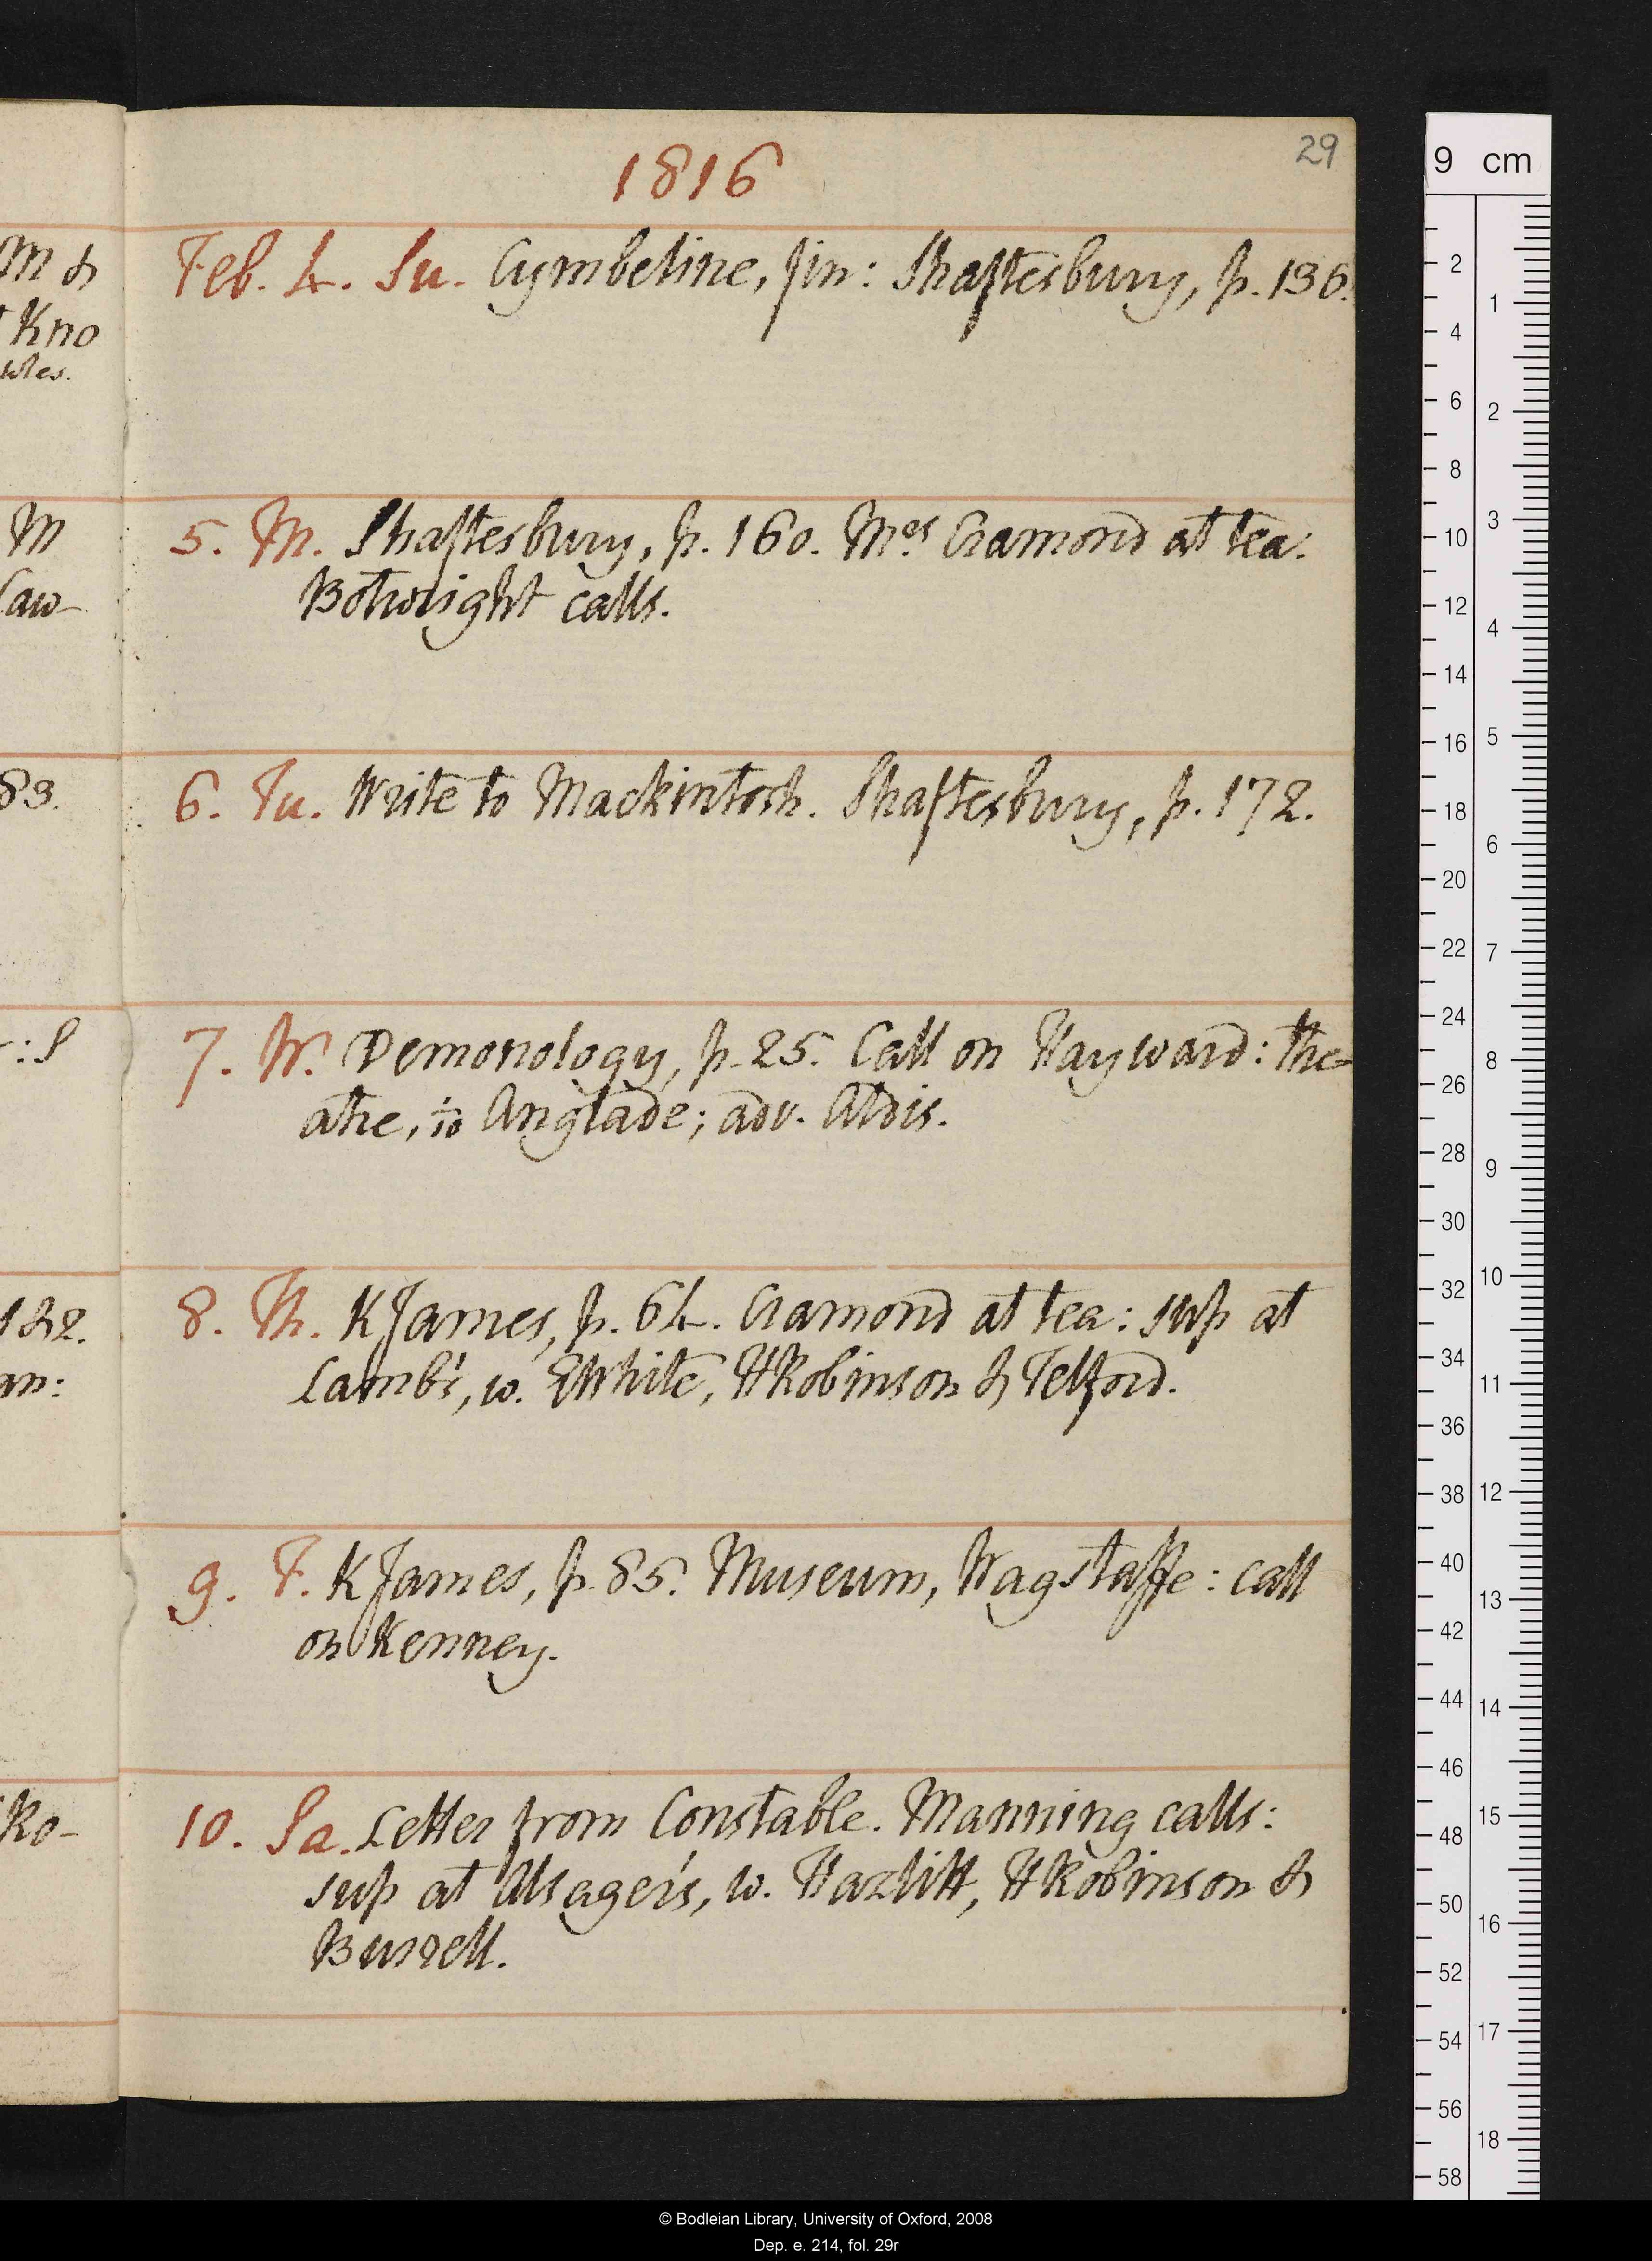 29
1816
m &
Kno
wles.
Feb. 4. Su. Cymbeline, fin: Shaftesbury, p. 136.
m
law-
5. M. Shaftesbury, p. 160. Mrs Cramond at tea:
Botwright calls.
83.
6. Tu. Write to Mackintosh. Shaftesbury, p. 172.
: S
7. W. Demonology, p. 25. Call on Hayward: the-
atre, Anglade; adv. Aldis.
182.
an:
8. Th. KJames, p. 64. Cramond at tea: sup at
Lamb's, w. EWhite, HRobinson & Telford.
9. F. KJames, p. 85. Museum, Wagstaffe: call
on Kenney.
Ro-
10. Sa. Letter from Constable. Manning calls:
sup at Alsager's, w. Hazlitt, HRobinson &
Burrell.
9 cm
2
4
6
8
10
12
14
16
18
20
22
24
26
28
30
32
34
36
38
40
42
44
46
48
50
52
54
56
58
1
2
3
4
5
6
7
8
9
10
11
12
13
14
15
16
17
18
© Bodleian Library, University of Oxford, 2008
Dep. e. 214, fol. 29r